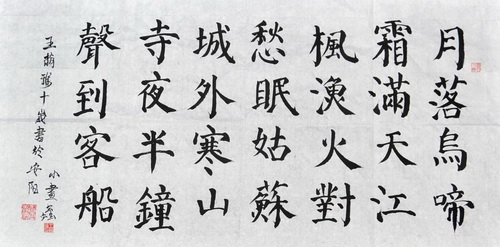 月落烏啼
霜滿天江
楓漁火對
愁眠姑蘇
城外寒山
寺夜半鐘
聲到客船
十歲書於安阳